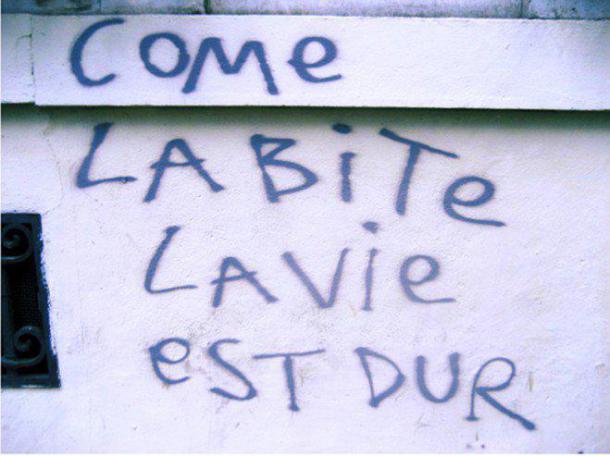 COMe
LA BiTe
LA ViE
eST DUR